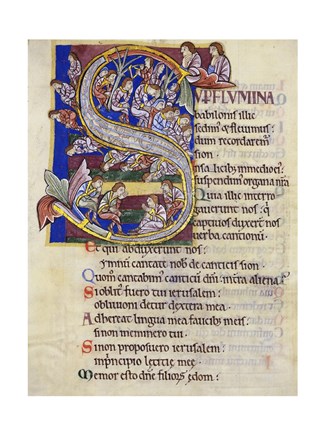 SUP FLUMINA
babilonis illic
sedimus & flevimus:
dum recordaremur
sion.
In salicibus in medio ei:
suspendim organa nra
Quia illic interro
gaverunt nos: q
captivos duxer nos
verba cantionu.
Et qui abduxerunt nos:
ymnu cantate nob de canticis sion.
Quom cantabim canticu dni: in tra aliena
Si oblit fuero tui ierusalem:
oblivioni detur dextera mea.
Adhereat lingua mea faucibus meis:
si non meminero tui.
Si non proposuero ierusalem:
in principio leticie mee.
Memor esto dne filiorum edom: